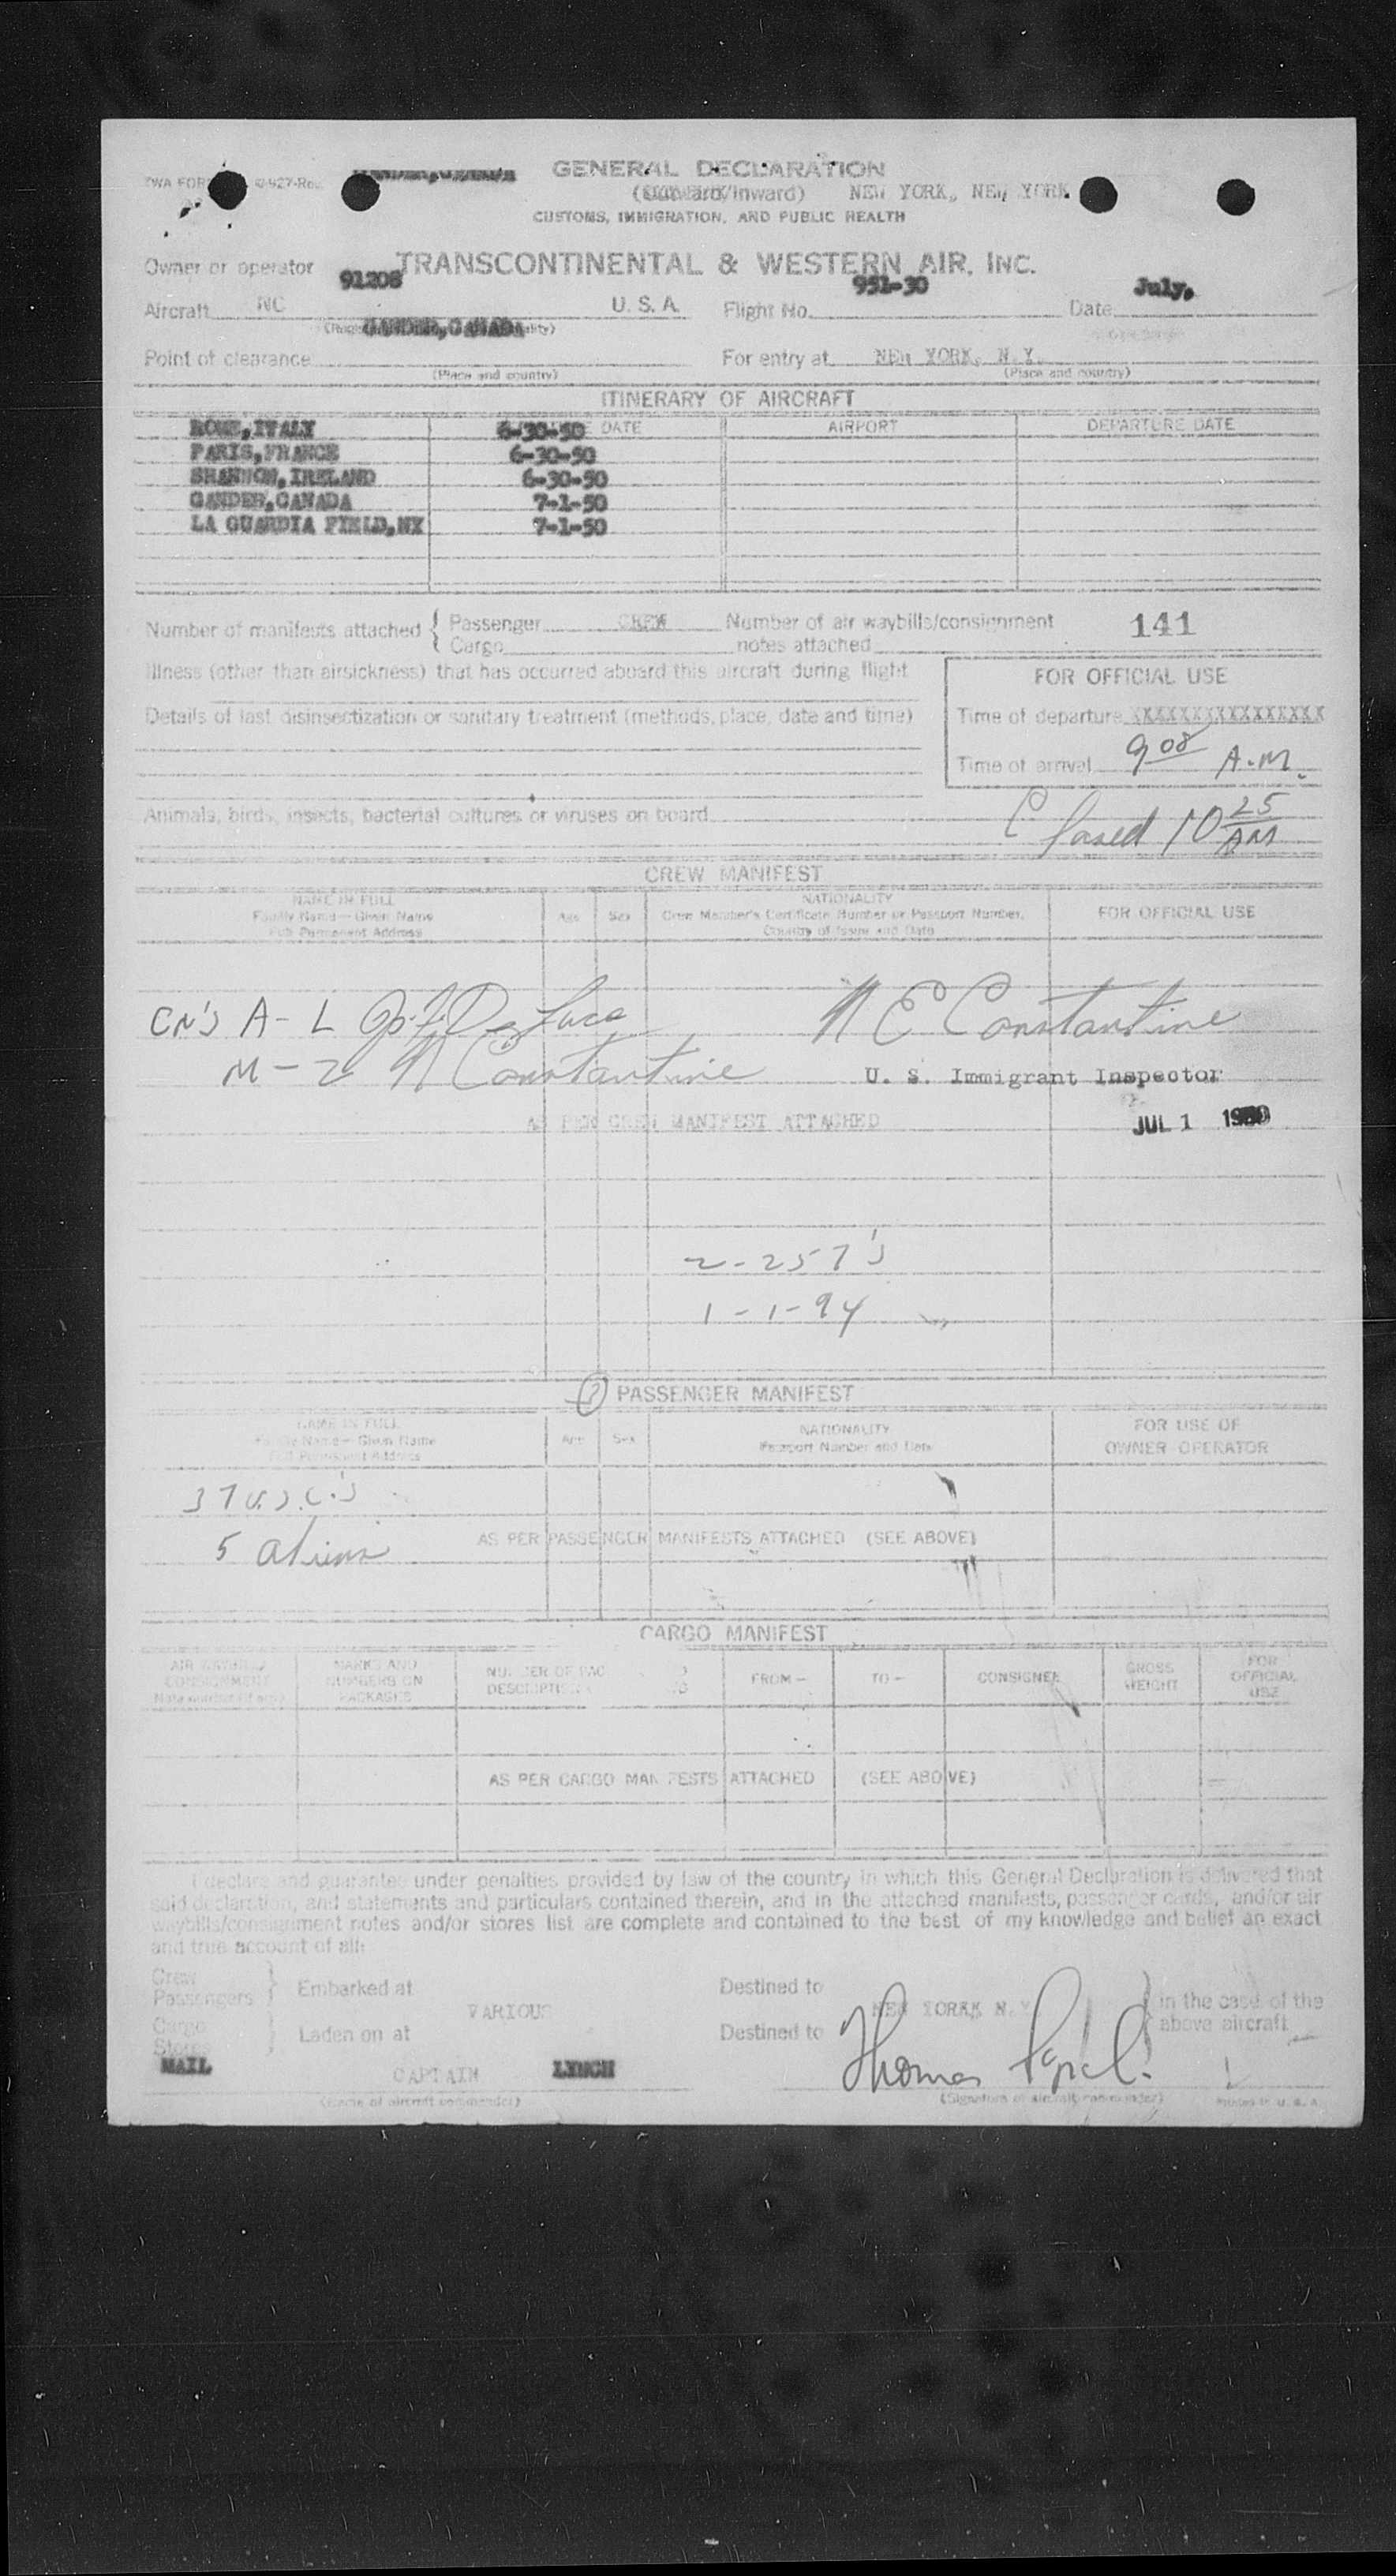 GENERAL DECLARATION
(Outward/Inward) NEW YORK, NEW YORK.
CUSTOMS, IMMIGRATION, AND PUBLIC HEALTH
Owner or operator TRANSCONTINENTAL & WESTERN AIR, INC.
Aircraft NC 91208 U. S. A. Flight No. 951-30 Date July,
Point of clearance GANDER, CANADA For entry at NEW YORK, N.Y.
(Place and country) (Place and country)
ITINERARY OF AIRCRAFT
DATE AIRPORT DEPARTURE DATE
ROME, ITALY 6-30-50
PARIS, FRANCE 6-30-50
SHANNON, IRELAND 6-30-50
GANDER, CANADA 7-1-50
LA GUARDIA FIELD, NY 7-1-50
Number of manifests attached { Passenger CREW Number of air waybills/consignment 141
Cargo notes attached
Illness (other than airsickness) that has occurred aboard this aircraft during flight
FOR OFFICIAL USE
Details of last disinsectization or sanitary treatment (methods, place, date and time)
Time of departure XXXXXXXXXXXXXXXX
Time of arrival 9 08 A.M.
Animals, birds, insects, bacterial cultures or viruses on board
Closed 10 25 AM
CREW MANIFEST
NAME IN FULL NATIONALITY
Family Name—Given Name Age Sex Crew Member's Certificate Number or Passport Number, FOR OFFICIAL USE
Full Permanent Address Country of Issue and Date
CN's A-L De Luca N E Constantine
M-Z N Constantine U. S. Immigrant Inspector
AS PER CREW MANIFEST ATTACHED JUL 1 1950
2-257's
1-1-94
PASSENGER MANIFEST
NAME IN FULL NATIONALITY FOR USE OF
Family Name—Given Name Age Sex Passport Number and Date OWNER OPERATOR
Full Permanent Address
37 U.S.C.'s
5 aliens AS PER PASSENGER MANIFESTS ATTACHED (SEE ABOVE)
CARGO MANIFEST
AIR WAYBILL CONSIGNMENT MARKS AND NUMBERS ON PACKAGES FROM— TO— CONSIGNEE GROSS WEIGHT FOR OFFICIAL USE
AS PER CARGO MANIFESTS ATTACHED (SEE ABOVE)
I declare and guarantee under penalties provided by law of the country in which this General Declaration is delivered that
said declaration, and statements and particulars contained therein, and in the attached manifests, passenger cards, and/or air
waybills/consignment notes and/or stores list are complete and contained to the best of my knowledge and belief an exact
and true account of all:
Crew
Passengers } Embarked at Destined to
VARIOUS NEW YORK N.Y. } in the case of the
above aircraft
Cargo
Stores } Laden on at Destined to
MAIL
CAPTAIN LYNCH Thomas
(Name of aircraft commander) (Signature of aircraft commander) Printed in U. S. A.